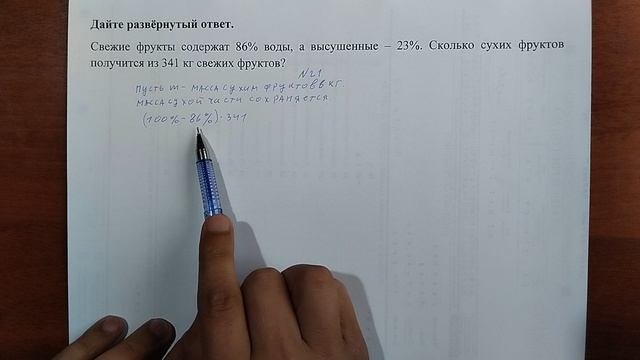 Дайте развёрнутый ответ.
Свежие фрукты содержат 86% воды, а высушенные – 23%. Сколько сухих фруктов
получится из 341 кг свежих фруктов?
№21
Пусть m - масса сухих фруктов в кг.
масса сухой части сохраняется
(100% - 86%) · 341